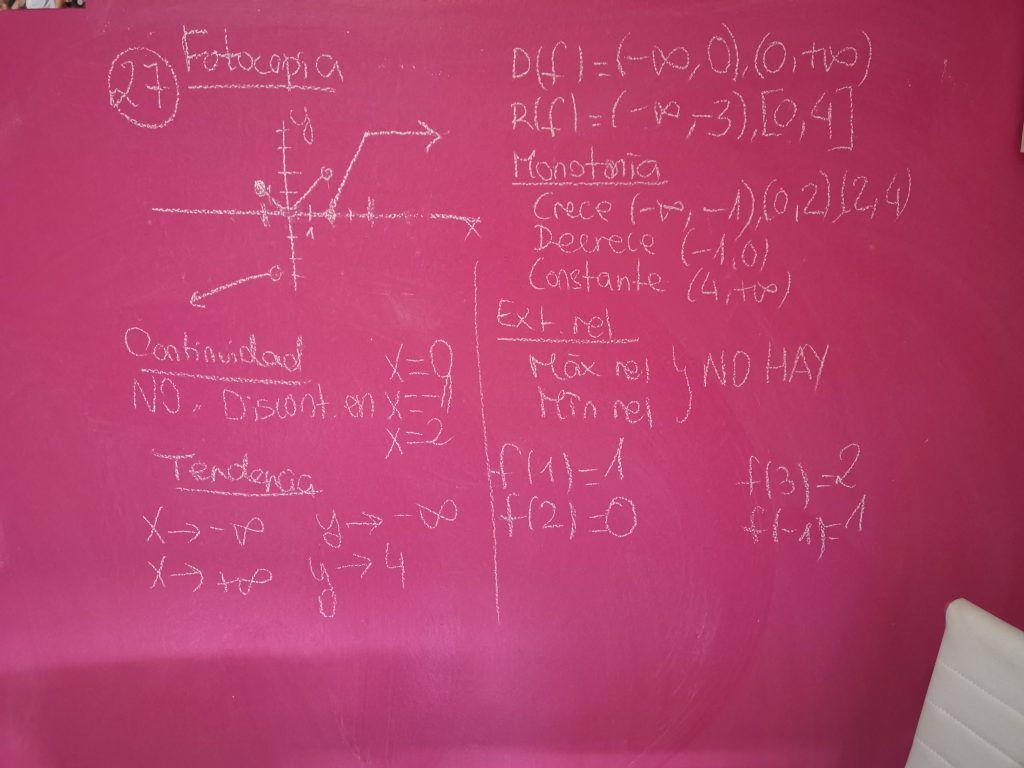 27
Fotocopia
y
1
x
Continuidad
NO. Discont. en x=0
x=-1
x=2
Tendencia
x→-∞ y→-∞
x→+∞ y→4
D(f)=(-∞,0),(0,+∞)
R(f)=(-∞,-3),[0,4]
Monotonía
Crece (-∞,-1),(0,2)(2,4)
Decrece (-1,0)
Constante (4,+∞)
Ext. rel
Máx rel } NO HAY
Mín rel
f(1)=1 f(3)=2
f(2)=0 f(-1)=1